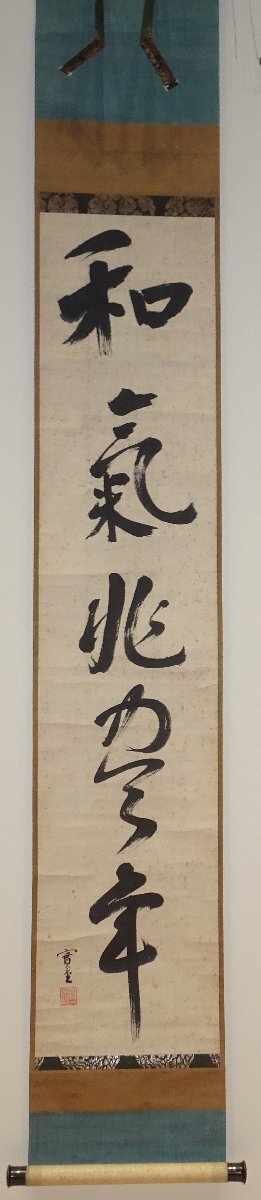 和氣兆豐年